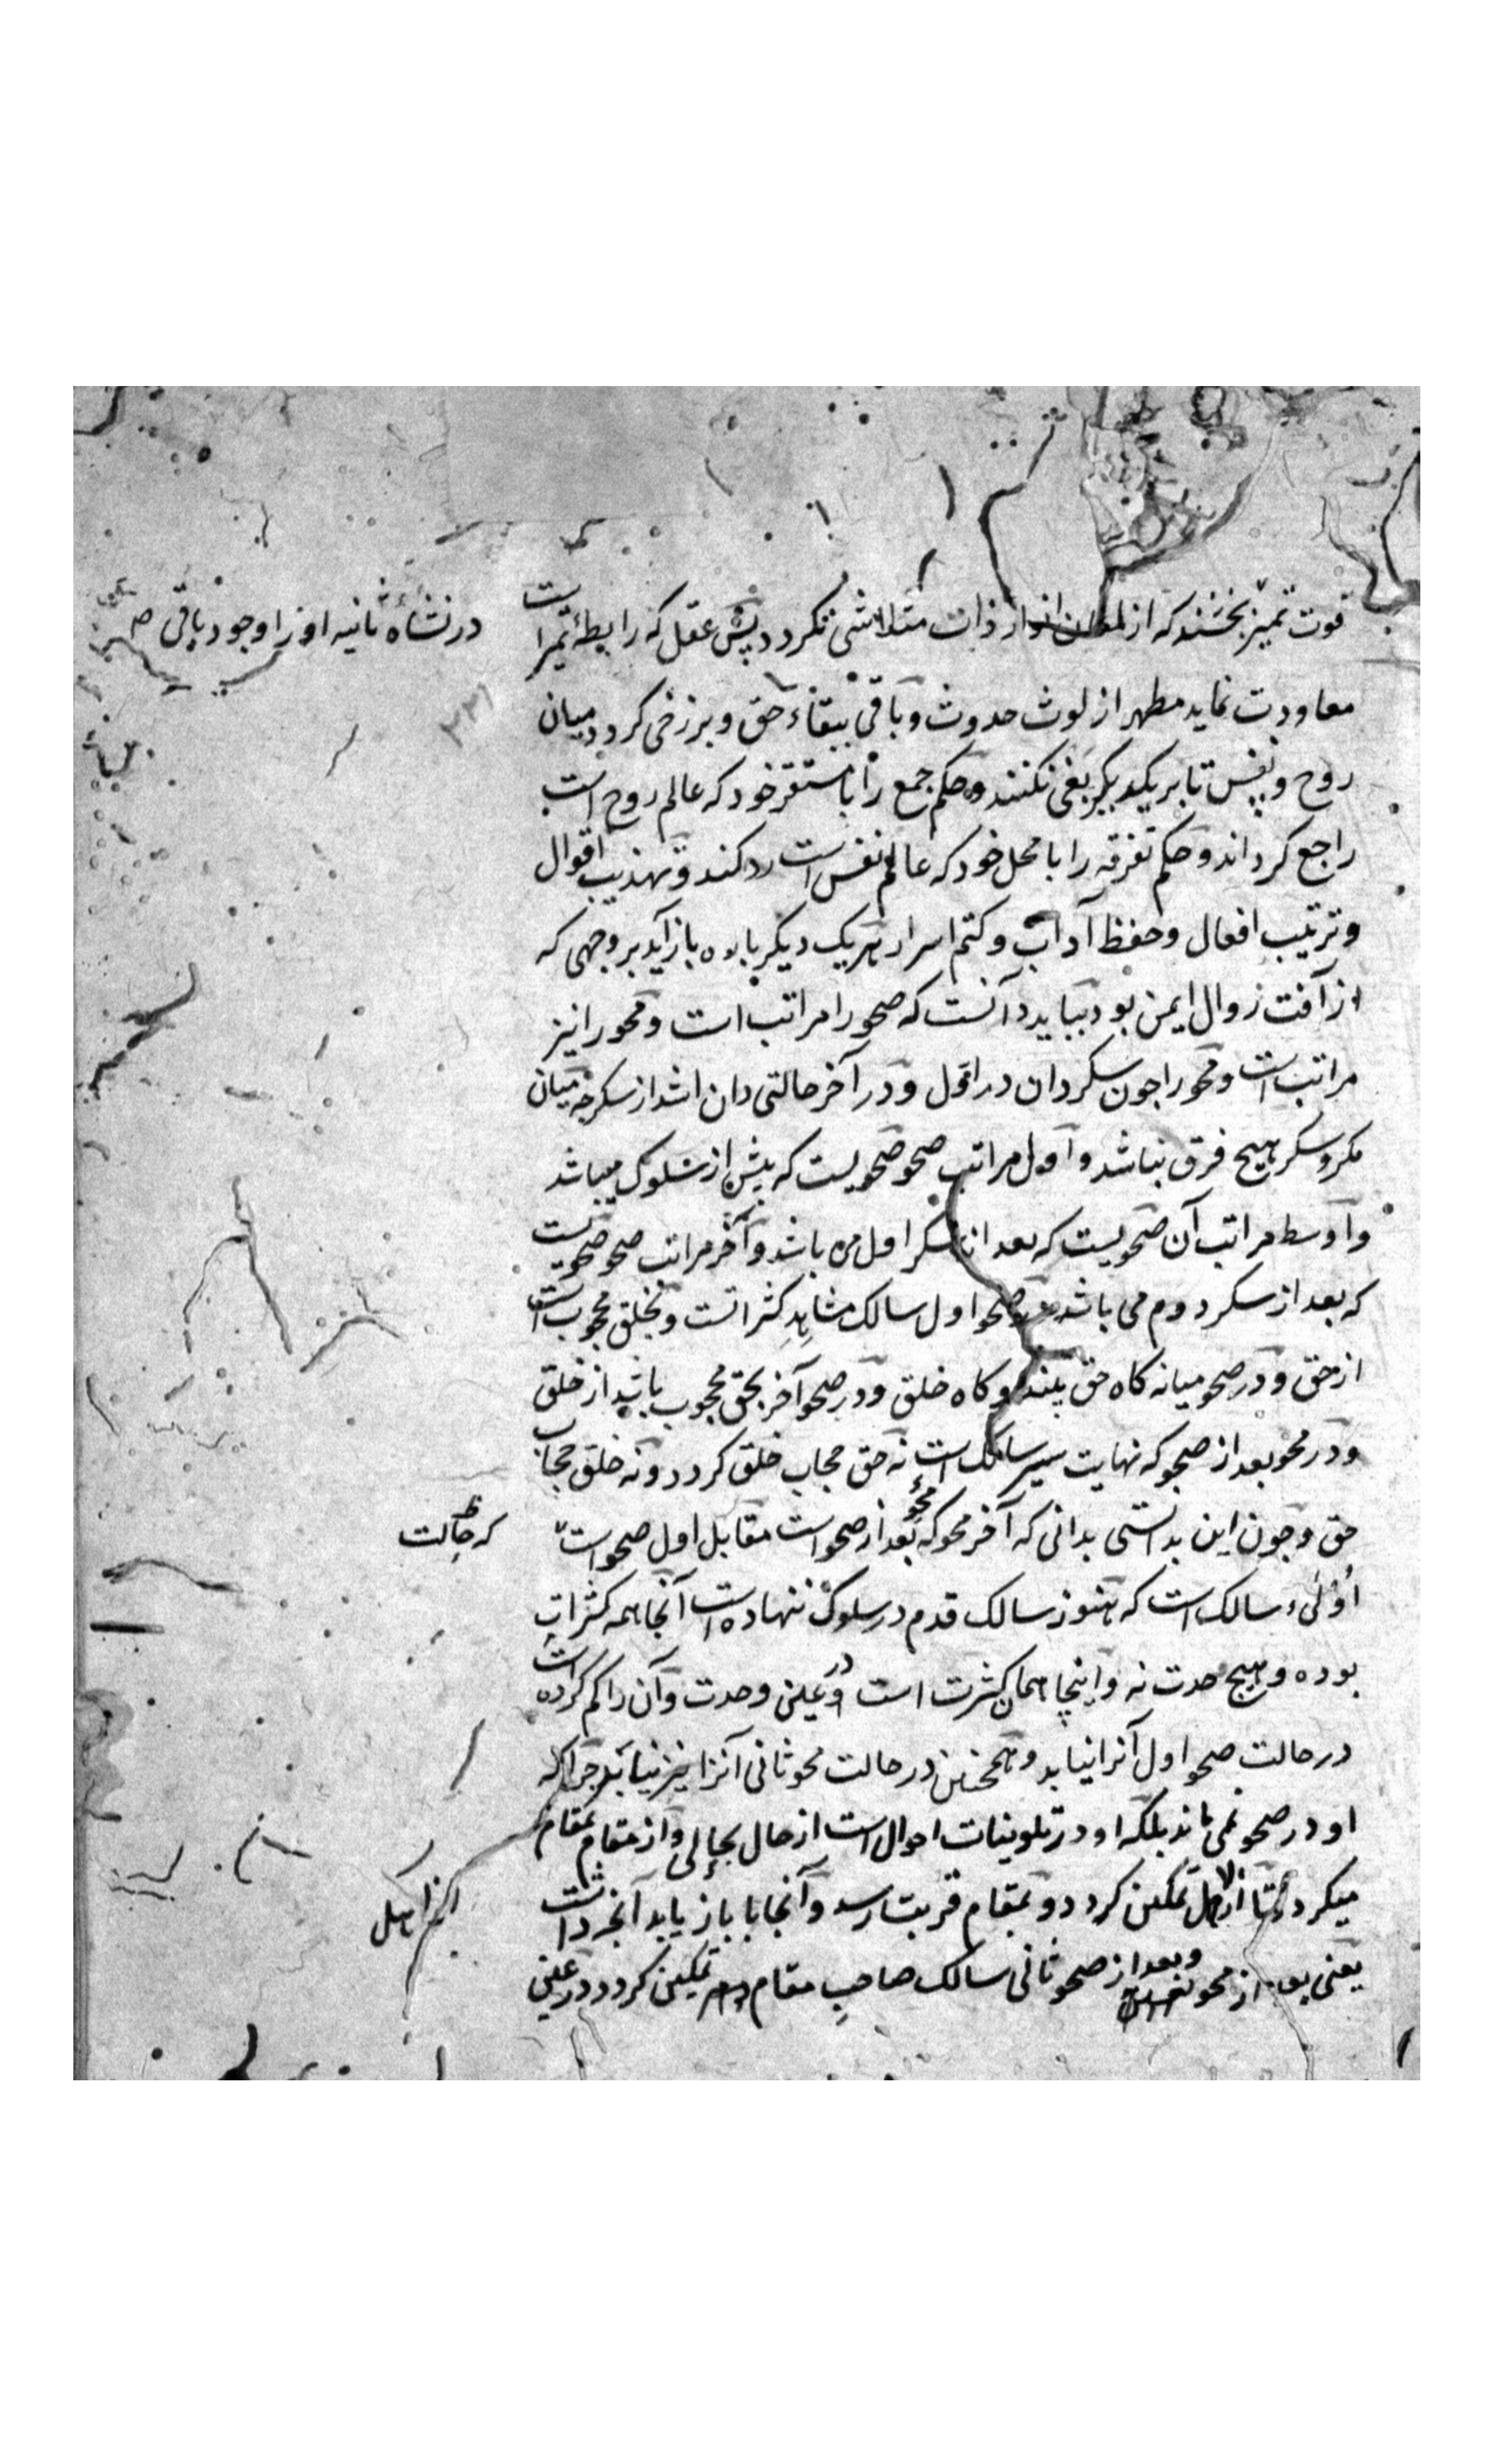 در نشاه ثانیه او را وجود باقی
قوت تمیز بخشند که از لمعان انوار ذات متلاشی نکردد پس عقل که رابطهٔ تمیز است
معاودت نماید مطهر از لوث حدوث و باقی ببقاء حق و برزخی کردد میان
روح و نفس تا بر یکدیکر بغی نکنند و حکم جمع را با مستقر خود که عالم روح است
راجع کرداند و حکم تفرقه را با محل خود که عالم نفس است رد کند و تهذیب اقوال
و ترتیب افعال و حفظ آداب و کتم اسرار هریک دیکر باره باز آید بر وجهی که
از آفت زوال ایمن بود بباید دانست که صحو را مراتب است و محو را نیز
مراتب است و محو را جون سکر دان در اول و در آخر حالتی دان اشد از سکر جه میان
مکر و سکر هیچ فرق نباشد و اول مراتب صحو صحویست که پیش از سلوک میباشد
و اوسط مراتب آن صحویست که بعد از سکر اول می باشد و آخر مراتب صحو صحویست
که بعد از سکر دوم می باشد صحو اول سالک مشاهد کثراتست و بخلق محجوب است
از حق و در صحو میانه کاه حق بیند و کاه خلق و در صحو آخر بحق محجوب باشد از خلق
و در محو بعد از صحو که نهایت سیر سالک است نه حق حجاب خلق کردد و نه خلق حجاب
حق و جون این بدانستی بدانی که آخر محو که محو بعد از صحو است مقابل اول صحو است
که حالت
اولیء سالک است که هنوز سالک قدم در سلوک ننهاده است آنجا همه کثرات
بوده و هیچ وحدت نه و اینجا همان کثرت است در عین وحدت و آن را کم کرده است
در حالت صحو اول آنرا نیابد و همچنین در حالت محو ثانی آنرا نیز نیابد جرا که
او در صحو نمی ماند بلکه او در تلوینات احوال است از حال بحالی و از مقام بمقام
میکردد تا از اهل تمکین کردد و بمقام قربت رسد و آنجا باز یابد آنجه داشت
یعنی بعد از محو و بعد از صحو ثانی سالک صاحب مقام تمکین کردد در عین